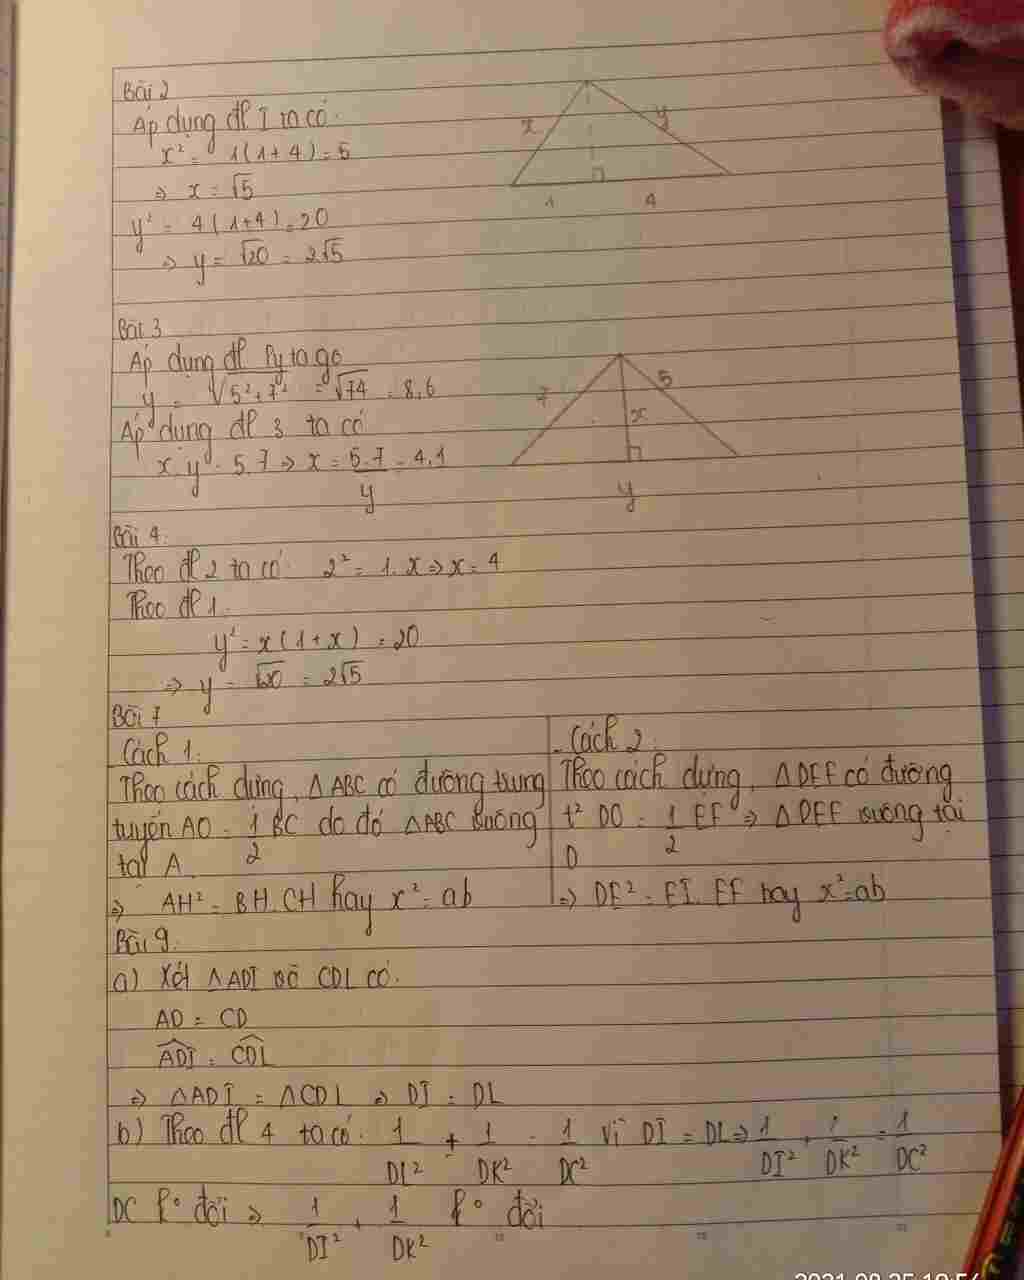 Bài 2
Áp dụng đl I ta có.
x² = 1(1+4) = 5
⇒ x = √5
y² = 4(1+4) = 20
⇒ y = √20 = 2√5
x
y
1
4
Bài 3
Áp dụng đl Pytago
y = √5²+7² = √74 = 8,6
Áp dụng đl 3 ta có
x.y = 5.7 ⇒ x = 5.7/y = 4,1
7
5
x
y
Bài 4:
Theo đl 2 ta có: 2² = 1.x ⇒ x = 4
Theo đl 1:
y² = x(1+x) = 20
⇒ y = √20 = 2√5
Bài 7
Cách 1:
Theo cách dựng, ΔABC có đường trung
tuyến AO = 1/2 BC do đó ΔABC vuông
tại A
⇒ AH² = BH.CH hay x² = ab
- Cách 2:
Theo cách dựng, ΔDEF có đường
t² DO = 1/2 EF ⇒ ΔDEF vuông tại
D
⇒ DE² = EI.EF hay x² = ab
Bài 9:
a) Xét ΔADI và CDL có.
AD = CD
ADI = CDL
⇒ ΔADI = ΔCDL ⇒ DI = DL
b) Theo đl 4 ta có: 1/DL² + 1/DK² = 1/DC² Vì DI = DL ⇒ 1/DI² + 1/DK² = 1/DC²
DC k° đổi ⇒ 1/DI² + 1/DK² k° đổi